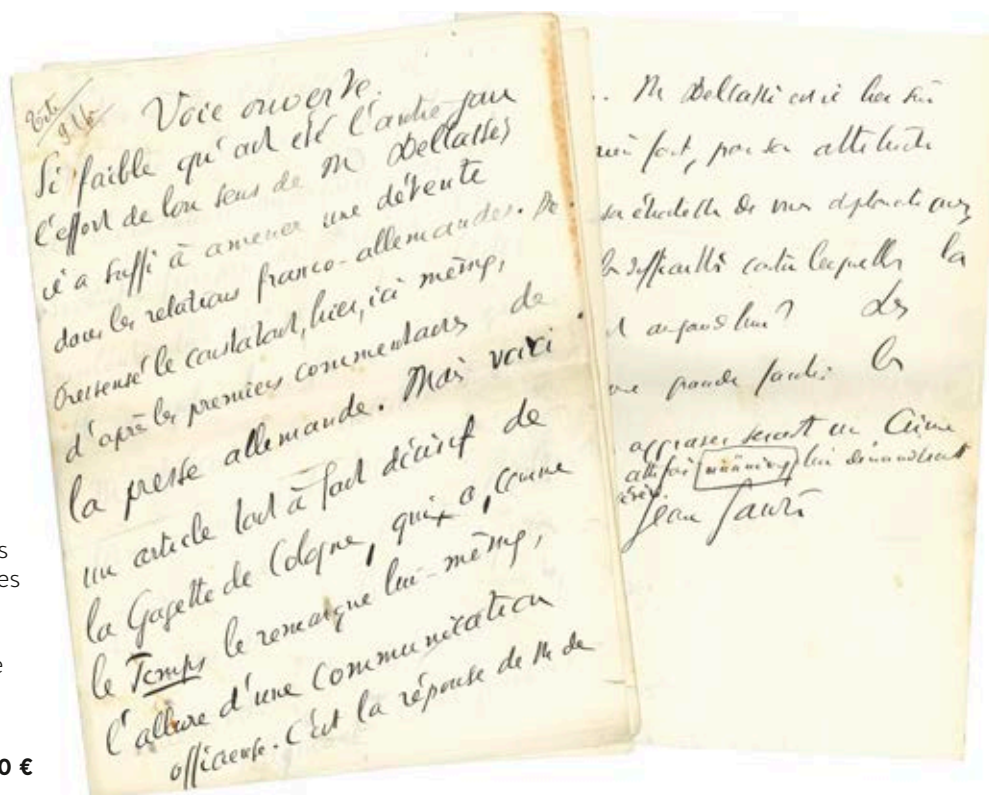 Voie ouverte.
Si faible qu'ait été l'autre jour
l'effort de bon sens de M Delcassé,
il a suffi à amener une détente
dans les relations franco-allemandes. M
le constatant, hier, ici même,
d'après les premiers commentaires de
la presse allemande. Mais voici
un article tout à fait décisif de
la Gazette de Cologne, qui a, comme
le Temps le remarque lui-même,
l'allure d'une communication
officieuse. C'est la réponse de M de
M Delcassé
par son attitude
de nos
difficultés contre lesquelles la
aujourd'hui? Les
une grande les
aggraver serait un crime
lui
Jean Jaurès
s
es
e
0 €